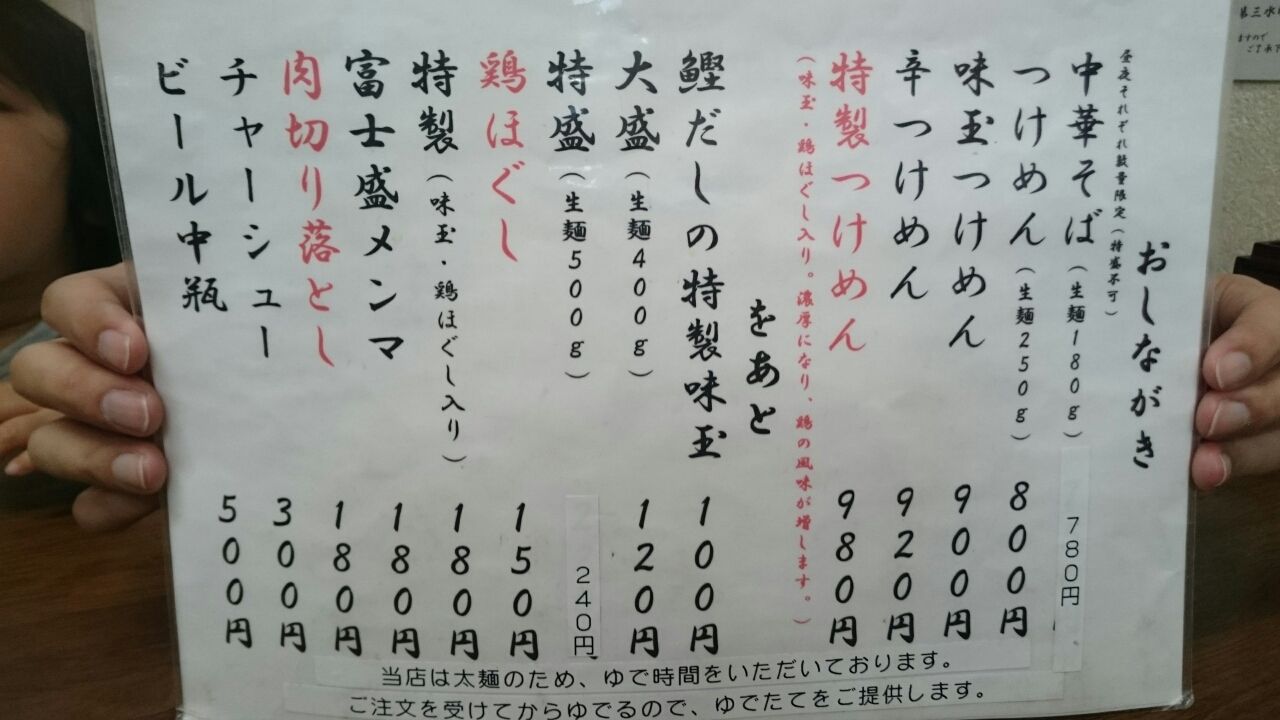 おしながき
昼夜それぞれ数量限定(特盛不可)
中華そば(生麺180g) 780円
つけめん(生麺250g) 800円
味玉つけめん 900円
辛つけめん 920円
特製つけめん 980円
(味玉・鶏ほぐし入り。濃厚になり、鶏の風味が増します。)
をあと
鰹だしの特製味玉 100円
大盛(生麺400g) 120円
特盛(生麺500g) 240円
鶏ほぐし 150円
特製(味玉・鶏ほぐし入り) 180円
富士盛メンマ 180円
肉切り落とし 180円
チャーシュー 300円
ビール中瓶 500円
当店は太麺のため、ゆで時間をいただいております。
ご注文を受けてからゆでるので、ゆでたてをご提供します。
第三水
ますので
ご了承下